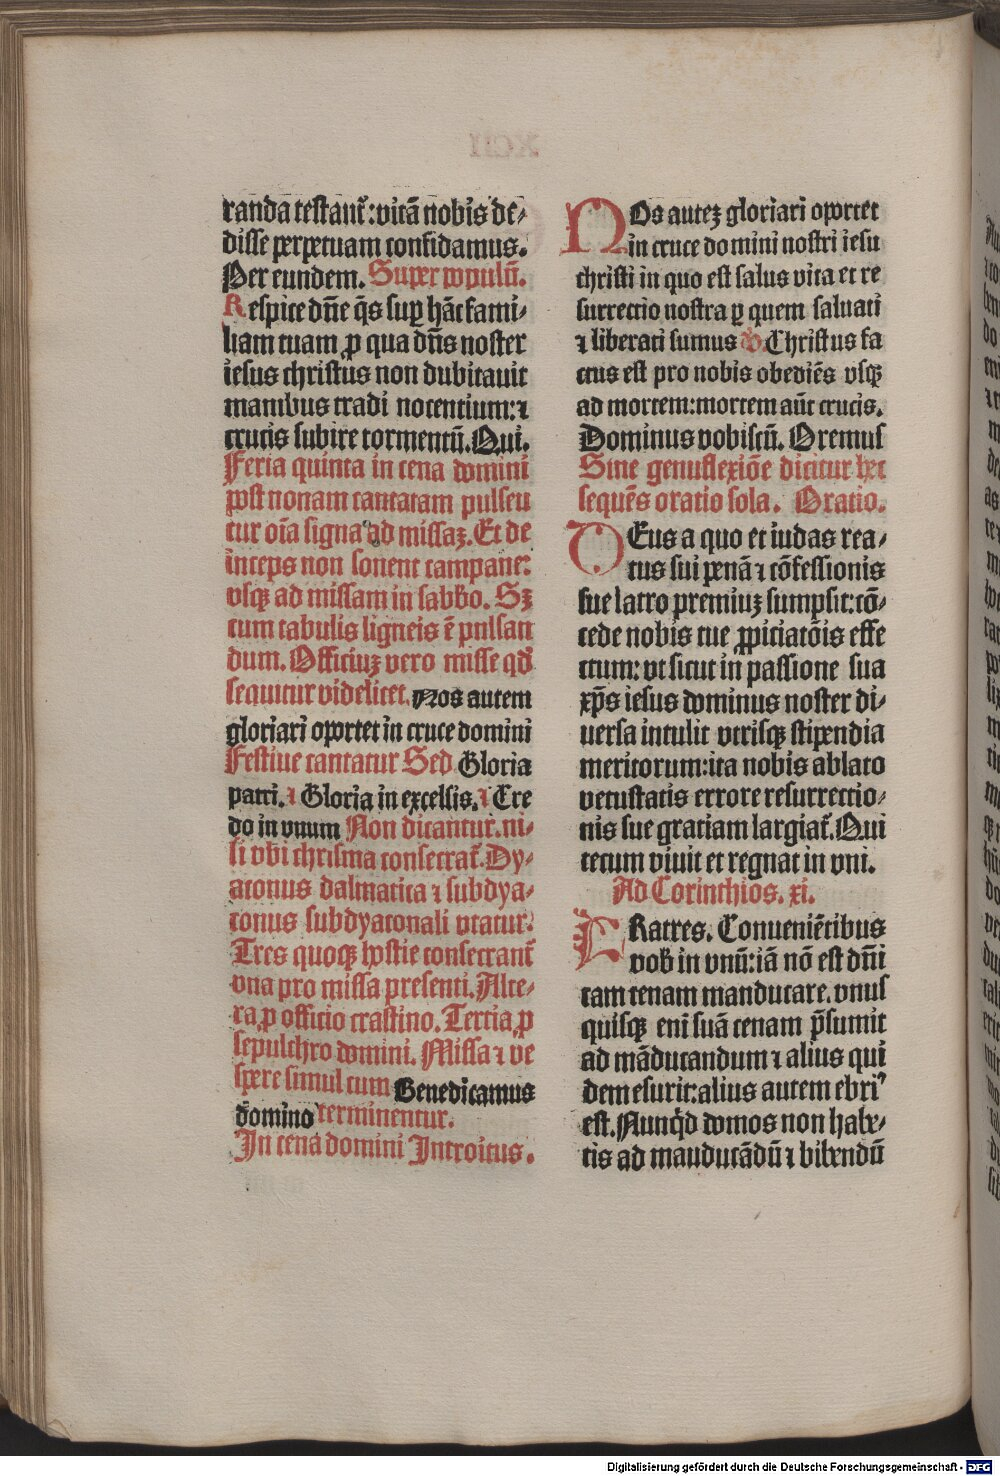 randa testant᷑: vitā nobis de⸗
disse perpetuam confidamus.
Per eundem. Super populū.
Respice dn̄e q̄s suꝑ hāc fami⸗
liam tuam ꝓ qua dn̄s noster
iesus christus non dubitauit
manibus tradi nocentium: ⁊
crucis subire tormentū. Qui.
Feria quinta in cena domini
post nonam cantatam pulsen
tur oīa signa ad missaꝫ. Et de
inceps non sonent campane:
vsqꝫ ad missam in sabb̄o. Sꝫ
cum tabulis ligneis ē pulsan
dum. Officiuꝫ vero misse qd̄
sequitur videlicet. Nos autem
gloriari oportet in cruce domini
Festiue cantatur Sed Gloria
patri. ⁊ Gloria in excelsis. ⁊ Cre
do in vnum Non dicantur. ni⸗
si vbi chrisma consecrat᷑. Dy⸗
aconus dalmatica ⁊ subdya⸗
conus subdyaconali vtatur.
Tres quoqꝫ hostie consecrant᷑
vna pro missa presenti. Alte⸗
ra ꝓ officio crastino. Tercia ꝓ
sepulchro domini. Missa ⁊ ve
spere simul cum Benedicamus
domino terminentur.
In cena domini Introitus.
NOs auteꝫ gloriari oportet
in cruce domini nostri iesu
christi in quo est salus vita et re
surrectio nostra ꝑ quem saluati
⁊ liberati sumus V. Christus fa
ctus est pro nobis obediēs vsqꝫ
ad mortem: mortem aūt crucis.
Dominus vobiscū. Oremus
Sine genuflexiōe dicitur hec
sequēs oratio sola. Oratio.
DEus a quo et iudas rea⸗
tus sui penā ⁊ cōfessionis
sue latro premiuꝫ sumpsit: cō⸗
cede nobis tue ꝓpiciatōis effe
ctum: vt sicut in passione sua
xp̄s iesus dominus noster di⸗
uersa intulit vtrisqꝫ stipendia
meritorum: ita nobis ablato
vetustatis errore resurrectio⸗
nis sue gratiam largiat᷑. Qui
tecum viuit et regnat in vni.
Ad Corinthios. xi.
FRatres. Conueniētibus
vob in vnū: iā nō est dn̄i
cam cenam manducare. vnus
quisqꝫ eni suā cenam p̄sumit
ad māducandum ⁊ alius qui
dem esurit: alius autem ebriꝰ
est. Nunqd̄ domos non habe⸗
tis ad manducādū ⁊ bibendū
Digitalisierung gefördert durch die Deutsche Forschungsgemeinschaft - DFG